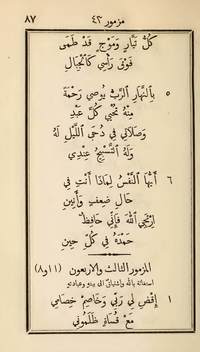 ٨٧ مزمور ٤٢
كُلُّ تَيَّارٍ وَمَوْجٍ قَدْ طَمَى
فَوْقَ رَأْسِي كَالْجِبَالِ
٥ بِالنَّهَارِ الرَّبُّ يُوصِي رَحْمَةً
مِنْهُ تُحْيِي كُلَّ عَبْدِ
وَصَلَاتِي فِي دُجَى اللَّيْلِ لَهُ
وَلَهُ التَّسْبِيحُ عِنْدِي
٦ أَيُّهَا النَّفْسُ لِمَاذَا أَنْتِ فِي
حَالِ ضُعْفٍ وَأَنِينِ
اِرْتَجِي اللهَ فَإِنِّي حَافِظٌ
حَمْدَهُ فِي كُلِّ حِينِ
المزمور الثالث والاربعون (١١ و٨)
استغاثة بالله واشتياق الى بيته وعبادته
١ اِقْضِ لِي رَبِّي وَخَاصِمْ خِصَامِي
مَعْ قُسَاةٍ ظَلَمُونِي